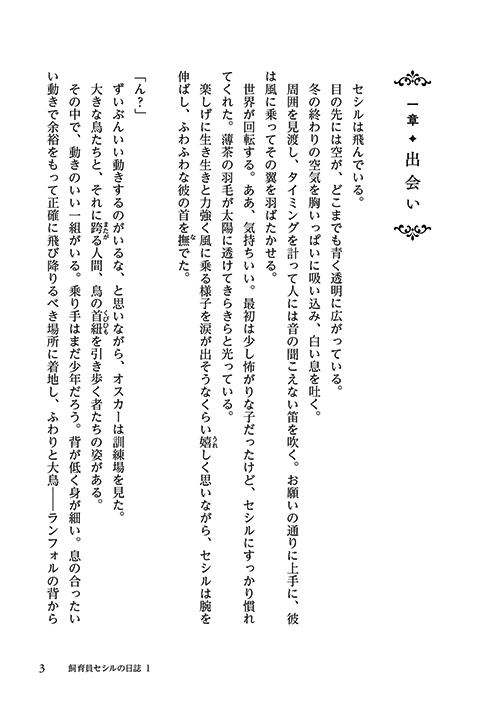 一章✦出会い
セシルは飛んでいる。
目の先には空が、どこまでも青く透明に広がっている。
冬の終わりの空気を胸いっぱいに吸い込み、白い息を吐く。
周囲を見渡し、タイミングを計って人には音の聞こえない笛を吹く。お願いの通りに上手に、彼
は風に乗ってその翼を羽ばたかせる。
世界が回転する。ああ、気持ちいい。最初は少し怖がりな子だったけど、セシルにすっかり慣れ
てくれた。薄茶の羽毛が太陽に透けてきらきらと光っている。
楽しげに生き生きと力強く風に乗る様子を涙が出そうなくらい嬉しく思いながら、セシルは腕を
伸ばし、ふわふわな彼の首を撫でた。
「ん？」
ずいぶんいい動きするのがいるな、と思いながら、オスカーは訓練場を見た。
大きな鳥たちと、それに跨る人間、鳥の首紐を引き歩く者たちの姿がある。
その中で、動きのいい一組がいる。乗り手はまだ少年だろう。背が低く身が細い。息の合ったい
い動きで余裕をもって正確に飛び降りるべき場所に着地し、ふわりと大鳥――ランフォルの背から
3 飼育員セシルの日誌 1